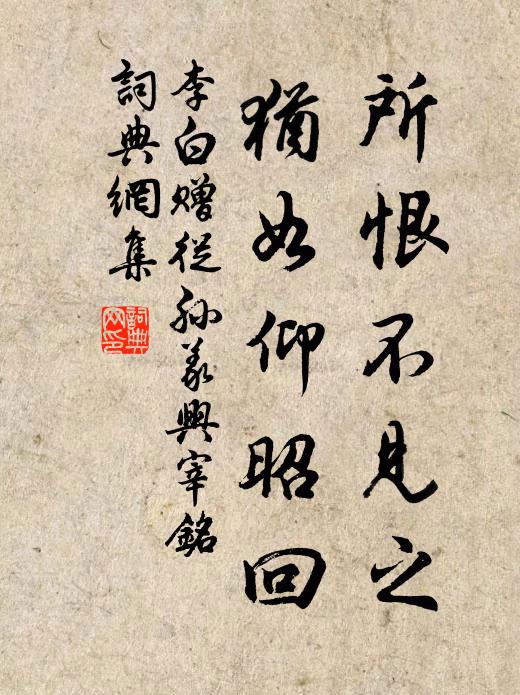 所恨不見之
猶如仰昭回
李白贈從孫義興宰銘
詞典網集
詞典
网印